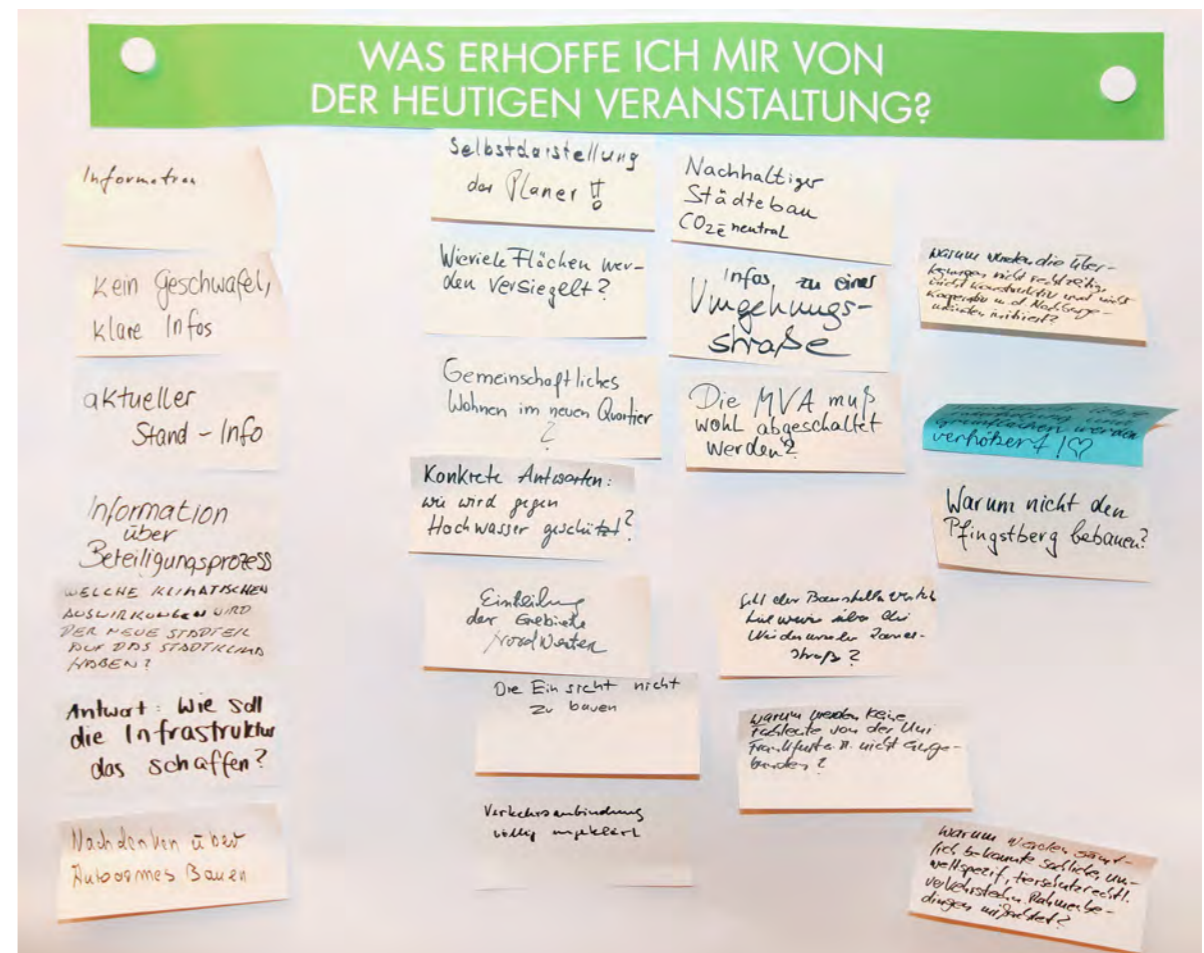 WAS ERHOFFE ICH MIR VON
DER HEUTIGEN VERANSTALTUNG?
Information
Kein Geschwafel,
klare Infos
aktueller
Stand - Info
Information
über
Beteiligungsprozess
WELCHE KLIMATISCHEN
AUSWIRKUNGEN WIRD
DER NEUE STADTEIL
AUF DAS STADTKLIMA
HABEN?
Antwort: Wie soll
die Infrastruktur
das schaffen?
Nachdenken über
Autoarmes Bauen
Selbstdarstellung
der Planer !!
Wieviele Flächen wer-
den versiegelt?
Gemeinschaftliches
Wohnen im neuen Quartier
?
Konkrete Antworten:
wie wird gegen
Hochwasser geschützt?
Einteilung
der Gebiete
Nord Westen
Die Einsicht nicht
zu bauen
Verkehrsanbindung
völlig ungeklärt
Nachhaltiger
Städtebau
CO2 neutral
Infos zu einer
Umgehungs-
straße
Die MVA muß
wohl abgeschaltet
werden?
Soll der Baustellenverkehr
über die
straße?
Warum werden keine
Fachleute von der Uni
Frankfurt a. M. nicht einge-
bunden?
Warum werden die Über-
legungen nicht rechtzeitig,
nicht konstruktiv und nicht
kooperativ m. d. Nachbarge-
meinden initiiert?
Grünflächen werden
verhökert !♡
Warum nicht den
Pfingstberg bebauen?
Warum werden sämt-
lich bekannte sachliche, um-
weltspezif., tierschutzrechtl.
verkehrstechn. Rahmenbe-
dingen mißachtet?